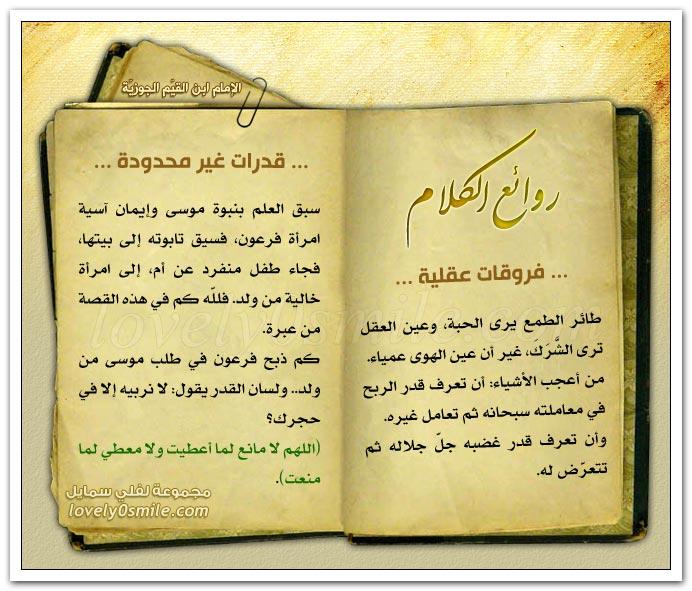 الإمام ابن القيّم الجوزيّة
روائع الكلام
... فروقات عقلية ...
طائر الطمع يرى الحبة، وعين العقل
ترى الشَّرَكَ، غير أن عين الهوى عمياء.
من أعجب الأشياء: أن تعرف قدر الربح
في معاملته سبحانه ثم تعامل غيره.
وأن تعرف قدر غضبه جلّ جلاله ثم
تتعرّض له.
... قدرات غير محدودة ...
سبق العلم بنبوة موسى وإيمان آسية
امرأة فرعون، فسيق تابوته إلى بيتها،
فجاء طفل منفرد عن أم، إلى امرأة
خالية من ولد. فللّه كم في هذه القصة
من عبرة.
كم ذبح فرعون في طلب موسى من
ولد.. ولسان القدر يقول: لا نربيه إلا في
حجرك؟
(اللهم لا مانع لما أعطيت ولا معطي لما
منعت).
مجموعة لفلي سمايل
lovely0smile.com
lovely0smile.com